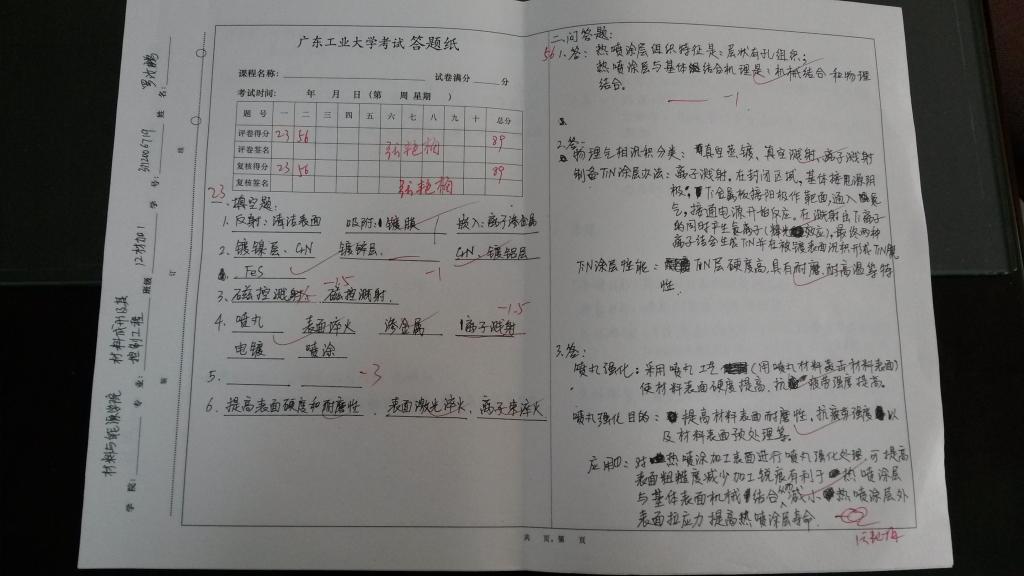 广东工业大学考试 答题纸
课程名称: 试卷满分 分
考试时间: 年 月 日 (第 周 星期 )
题 号 一 二 三 四 五 六 七 八 九 十 总分
评卷得分 23 56 89
评卷签名
复核得分 23 56 89
复核签名
23
一.填空题:
1. 反射: 清洁表面 吸附: 镀膜 嵌入: 离子渗金属
2. 镀镍层、CrN 镀锌层、 CrN、镀铝层
-1
FeS
-1.5
3. 磁控溅射 磁控溅射.
-1.5
4. 喷丸 表面淬火 渗金属 离子溅射
电镀 喷涂
5. -3
6. 提高表面硬度和耐磨性 、表面激光淬火、离子束淬火
学 院: 材料与能源学院 专 业: 材料成形及其控制工程 班级 12材加1 学 号: 3112006719 姓 名:
装 订 线
二.问答题:
56
1.答: 热喷涂层组织特征是: 层状有孔组织;
热喷涂层与基体结合机理是: 机械结合和物理
结合.
-1
2.答:
物理气相沉积分类: 真空蒸镀、真空溅射、离子溅射
制备TiN涂层办法: 离子溅射. 在封闭区域, 基体接电源阴
极, Ti金属板接阳极作靶面, 通入氮
气, 接通电源开始反应. 在溅射出Ti离子
的同时产生氮离子 , 最终两种
离子结合生成TiN并在被镀表面沉积形成TiN膜
TiN涂层性能: TiN层硬度高, 具有耐磨、耐高温等特
性.
3.答:
喷丸强化: 采用喷丸工艺 (用喷丸材料表击材料表面)
使材料表面硬度提高, 抗疲劳强度提高.
喷丸强化目的: 提高材料表面耐磨性、抗疲劳强度以
及材料表面预处理等.
应用: 对热喷涂加工表面进行喷丸强化处理, 可提高
表面粗糙度减少加工锐痕有利于热喷涂层
与基体表面机械结合, 减小热喷涂层外
表面拉应力提高热喷涂层寿命.
共 页,第 页